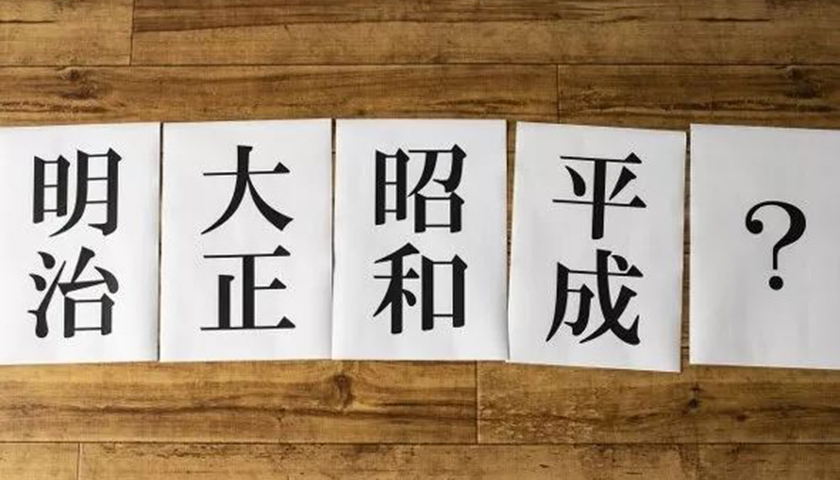 明治
大正
昭和
平成
？